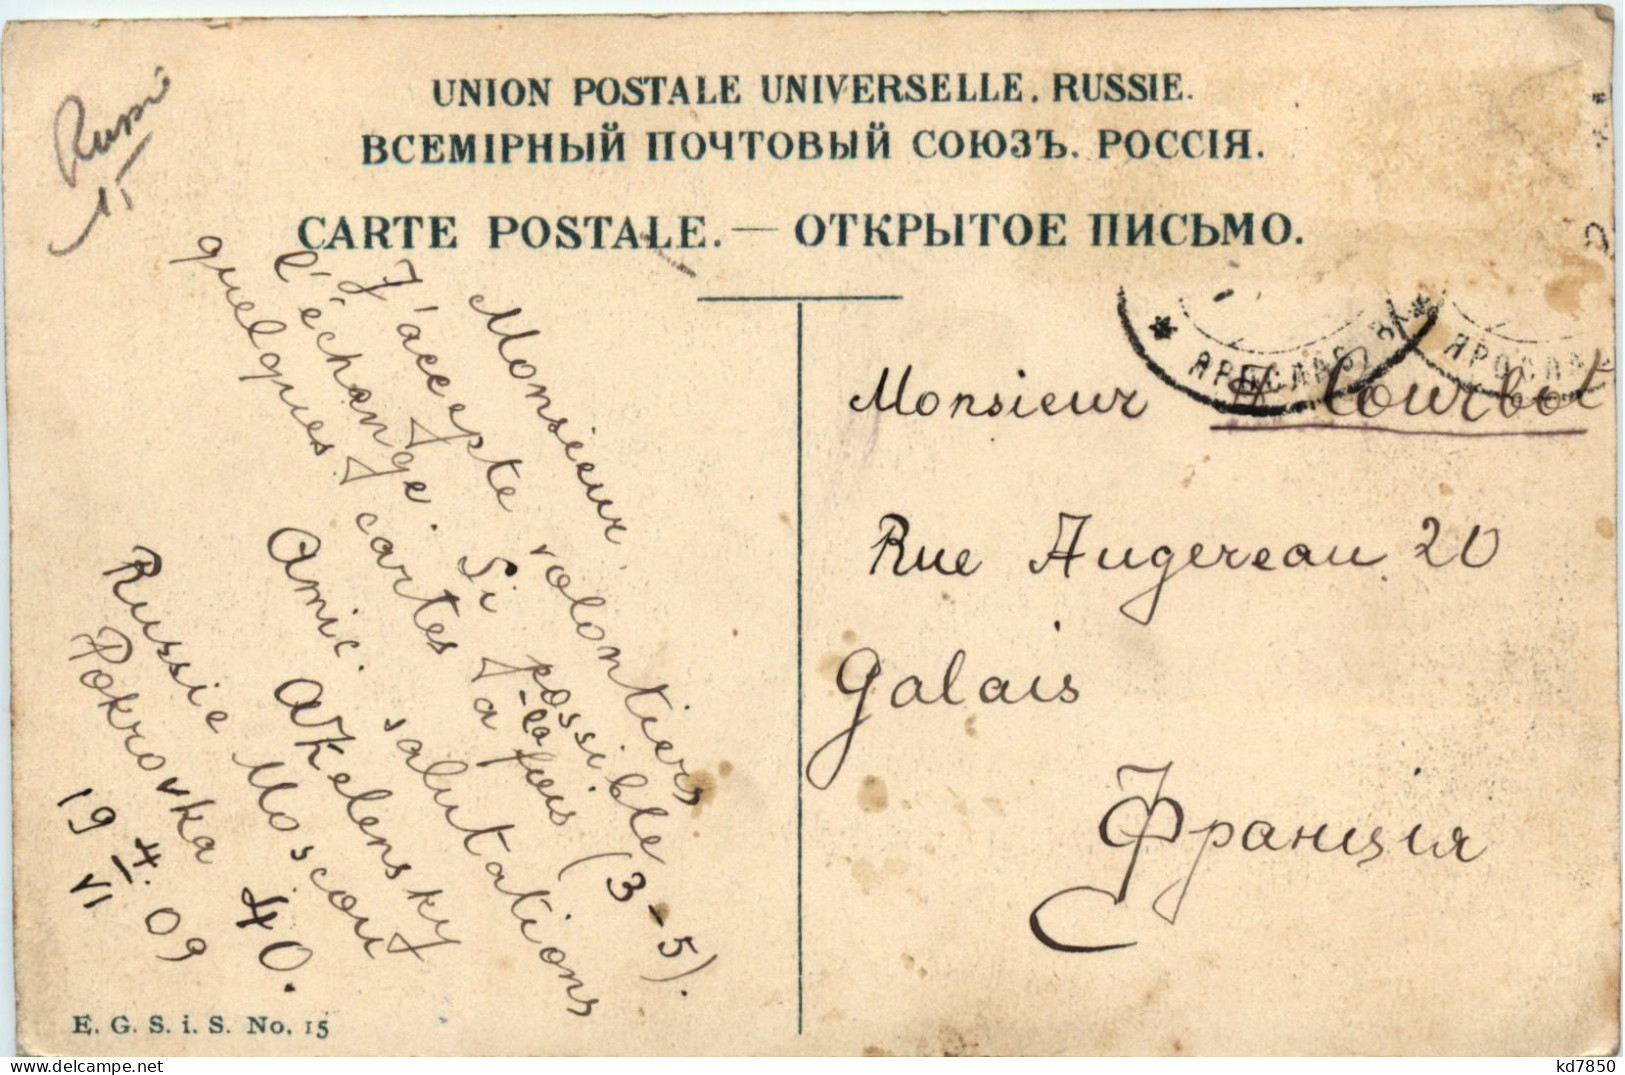 UNION POSTALE UNIVERSELLE. RUSSIE.
ВСЕМІРНЫЙ ПОЧТОВЫЙ СОЮЗЪ. РОССІЯ.
CARTE POSTALE. — ОТКРЫТОЕ ПИСЬМО.
Russie
15
Monsieur
J'accepte volontiers
l'échange. Si possible
quelques cartes à la fois (3-5).
Amic. salutations
A. Zelensky
Russie Moscou
Pokrovka 40.
19 4/VI 09
Monsieur A Courbot
Rue Augereau 20
Calais
Франція
ЯРОСЛАВ
ЯРОСЛАВ
E. G. S. i. S. No. 15
kd7850